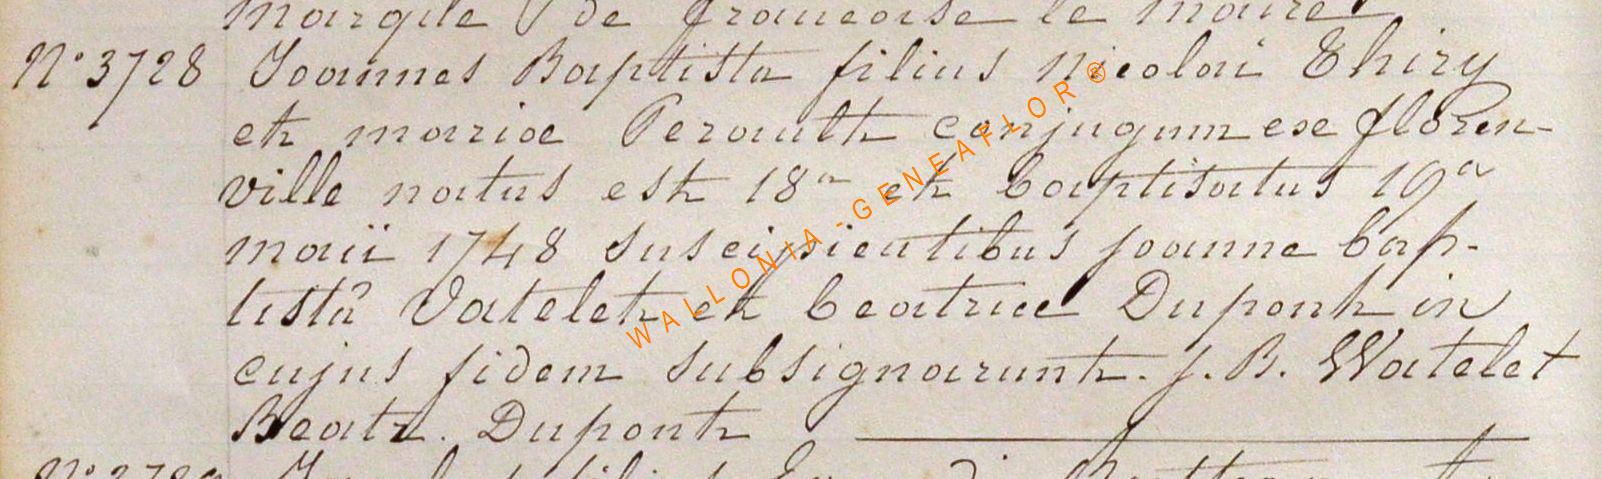 marque de francoise le maire
N° 3728 Joannes Baptista filius Nicolai Thiry
et mariae Perault conjugum ex floren-
ville natus est 18a et baptisatus 19a
maii 1748 suscipientibus joanne bap-
tistâ Vatelet et beatrice Dupont in
cujus fidem subsignarunt. j. B. Watelet
Beatr. Dupont
WALLONIA-GENEAFLOR®